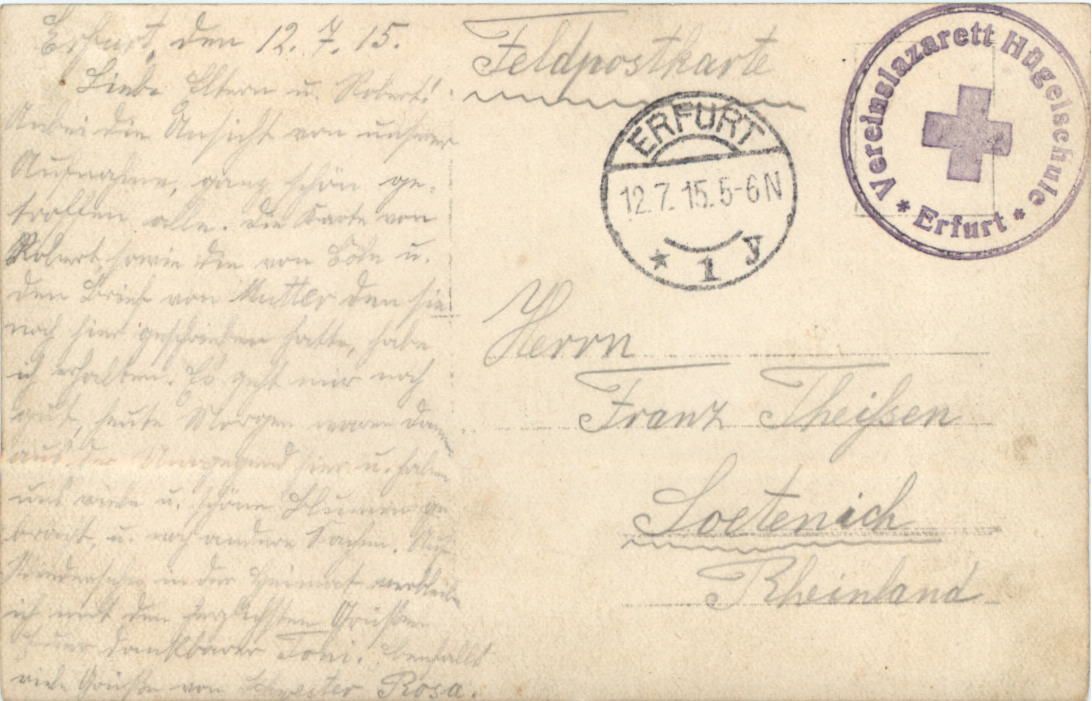 Erfurt, den 12. 7. 15.
Liebe Eltern u. Robert!
Anbei die Ansicht von unserer
Aufnahme, ganz schön ge-
troffen alle. Die Karte von
Robert, sowie die von u.
den Brief von Mutter den sie
noch hier geschrieben hatte, habe
ich erhalten. Es geht mir noch
gut, heute Morgen waren
aus der Umgegend hier u. haben
uns viele u. schöne Blumen ge
bracht, u. noch andere Sachen. Auf
Wiedersehn in der Heimat verbleibe
ich mit den herzlichsten Grüßen
Euer dankbarer Toni. Ebenfalls
viele Grüße von Schwester Rosa.
Feldpostkarte
ERFURT
12.7.15.5-6N
* 1 y
Vereinslazarett Hügelschule
* Erfurt *
Herrn
Franz Theißen
Soetenich
Rheinland